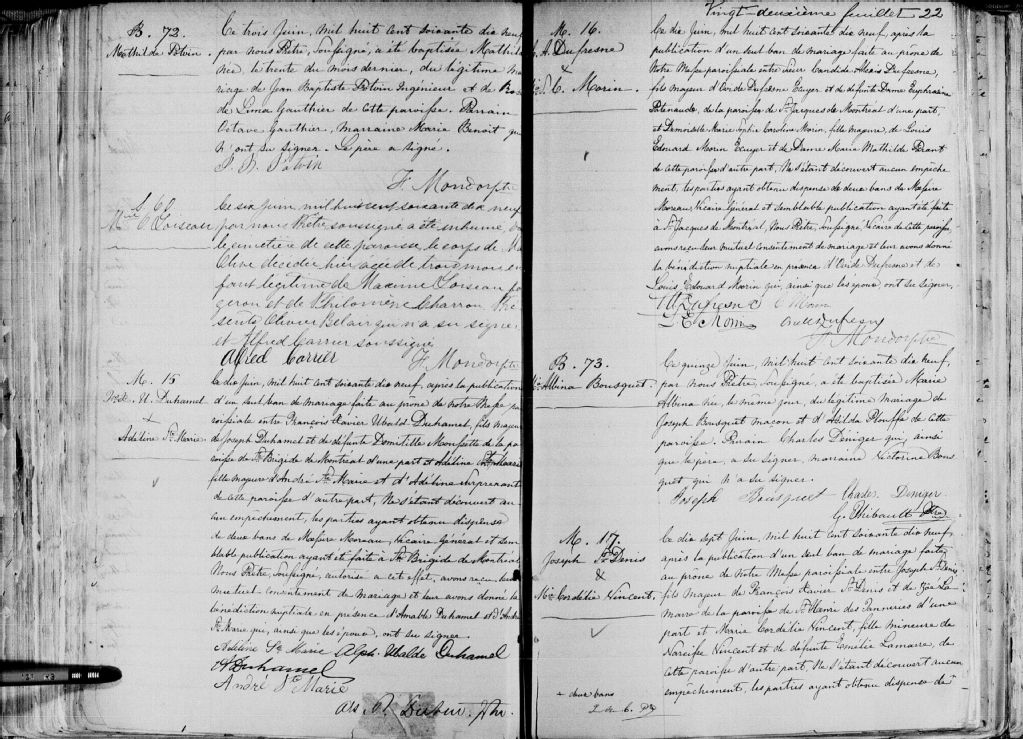 B. 72.
Mathilde Potvin
Ce trois Juin, mil huit cent soixante dix neuf
par nous Prêtre, soussigné, a été baptisée Mathilde
née, le trente du mois dernier, du légitime ma
riage de Jean Baptiste Potvin Ingénieur et de Ro
de Lima Gauthier de cette paroisse. Parrain
Octave Gauthier, marraine Marie Benoit qui
n'ont su signer. Le père a signé.
J. B. Potvin
F. Mondor ptre
S. 60
O Loiseau
Ce six Juin, mil huit cent soixante dix neuf
par nous Prêtre soussigné a été inhumé, dans
le cimetière de cette paroisse, le corps de
Olive décédée hier agée de trois mois en
fant légitime de Maxime Loiseau for
geron et de Philomène Charron. Pré
sents Olivier Belair qui n'a su signer
et Alfred Carrier soussigné
Alfred Carrier F. Mondor ptre
M. 15
U. Duhamel
&
Adéline Ste Marie.
Ce dix Juin, mil huit cent soixante dix neuf, après la publication
d'un seul ban de mariage faite au prône de notre Messe pa
roissiale entre François Xavier Ubald Duhamel, fils majeur
de Joseph Duhamel et de défunte Domitille Monfette de la pa
roisse de Ste Brigide de Montréal d'une part et Adéline Ste Marie
fille majeure d'André Ste Marie et d'Adéline Surprenant
de cette paroisse d'autre part, Ne s'étant découvert au
cun empêchement, les parties ayant obtenu dispense
de deux bans de Messire Moreau, Vicaire Général et sem
blable publication ayant été faite à Ste Brigide de Montréal
Nous Prêtre, soussigné, autorisé à cet effet, avons reçu leur
mutuel consentement de mariage et leur avons donné la
bénédiction nuptiale en présence d'Amable Duhamel et d'André
Ste Marie qui, ainsi que les époux, ont su signer.
Adéline Ste Marie Alph. Ubalde Duhamel
A Duhamel
André Ste Marie
Vingt-deuxième feuillet 22
M. 16.
A Dufresne
&
C. Morin.
Ce dix Juin, mil huit cent soixante dix neuf, après la
publication d'un seul ban de mariage faite au prône de
Notre Messe paroissiale entre Sieur Candide Alexis Dufresne,
fils majeur d'Ovide Dufresne Ecuyer et de défunte Dame Euphrasine
Patenaude, de la paroisse de St Jacques de Montréal d'une part,
et Demoiselle Marie Sophie Caroline Morin, fille mineure, de Louis
Edouard Morin Ecuyer et de Dame Maria Mathilde
de cette paroisse d'autre part, Ne s'étant découvert aucun empêche
ment, les parties ayant obtenu dispense de deux bans de Messire
Moreau, Vicaire Général et semblable publication ayant été faite
à St Jacques de Montréal, Nous Prêtre, soussigné, Vicaire de cette paroisse
avons reçu leur mutuel consentement de mariage et leur avons donné
la bénédiction nuptiale en présence d'Ovide Dufresne et de
Louis Edouard Morin qui, ainsi que les époux ont su signer.
Dufresne C Morin
L. E. Morin Ovide Dufresne
F. Mondor ptre
B. 73.
Albina Bousquet.
Ce quinze Juin, mil huit cent soixante dix neuf,
par nous Prêtre, soussigné, a été baptisée Marie
Albina née, le même jour, du légitime mariage de
Joseph Bousquet maçon et d'Exilda Plouffe de cette
paroisse. Parrain Charles Déniger qui, ainsi
que le père, a su signer, marraine Victorine Bous
quet qui n'a su signer.
Joseph Bousquet Charles Deniger
G. Thibault Ptre
M. 17.
Joseph St Denis
&
Cordélie Vincent,
Ce dix sept Juin, mil huit cent soixante dix neuf,
après la publication d'un seul ban de mariage faite
au prône de notre Messe paroissiale entre Joseph St Denis
fils majeur de François Xavier St Denis et de Zoé La
marre de la paroisse de St Henri des Tanneries d'une
part et Marie Cordélie Vincent, fille mineure de
Narcisse Vincent et de défunte Emélie Lamarre, de
cette paroisse d'autre part, Ne s'étant découvert aucun
empêchement, les parties ayant obtenu dispense de
+ deux bans